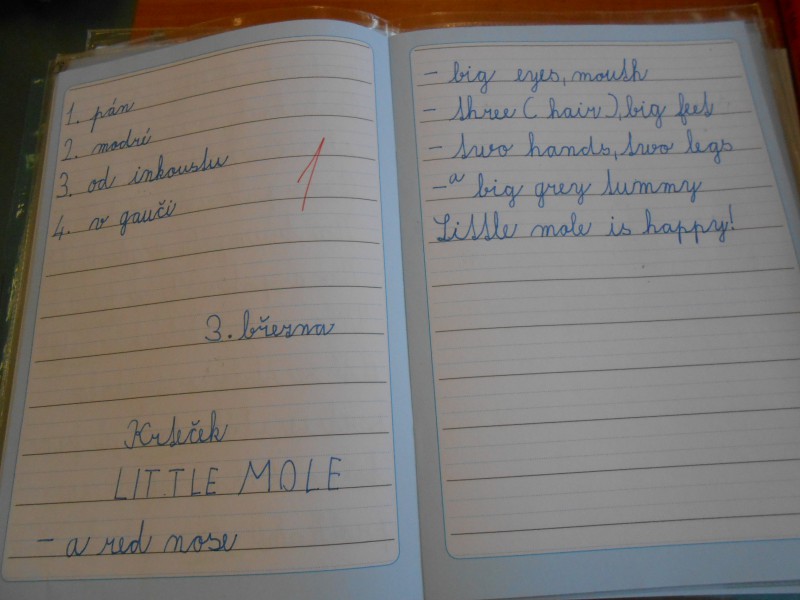 1. pán
2. modré
3. od inkoustu
4. v gauči
1
3. března
Krteček
LITTLE MOLE
- a red nose
- big eyes, mouth
- three (hair), big feet
- two hands, two legs
- a big grey tummy
Little mole is happy!